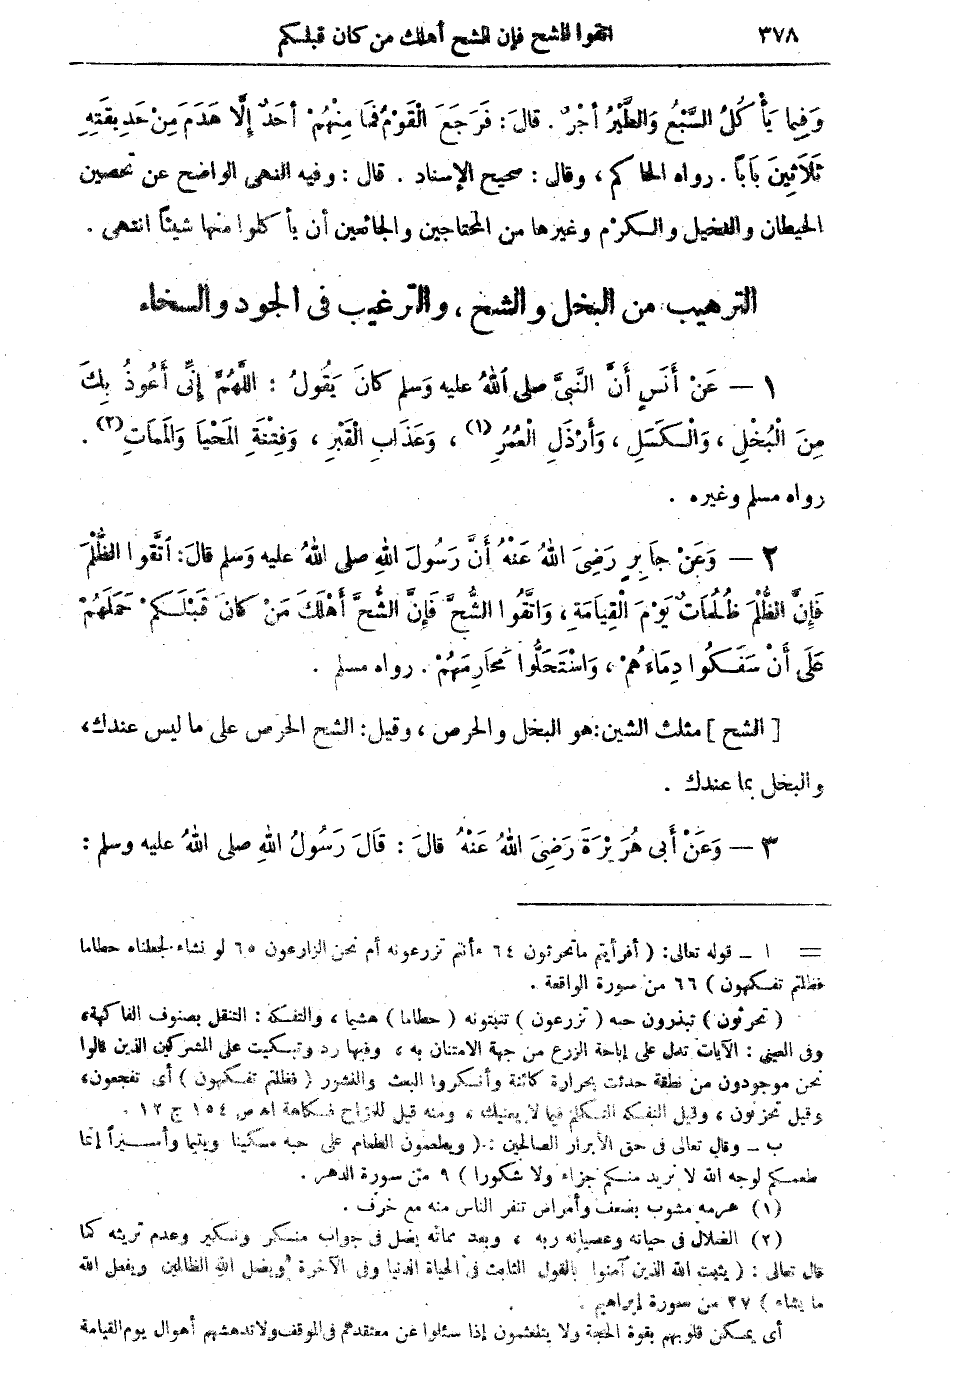 ٣٧٨ اتقوا الشح فإن الشح أهلك من كان قبلكم
وَفِيمَا يَأْكُلُ السَّبُعُ وَالطَّيْرُ أَجْرٌ . قالَ : فَرَجَعَ الْقَوْمُ فَمَا مِنْهُمْ أحَدٌ إِلَّا هَدَمَ مِنْ حَدِيقَتِهِ
ثَلَاثِينَ بَاباً . رواه الحاكم ، وقال : صحيح الإسناد . قال : وفيه النهى الواضح عن تحصين
الحيطان والنخيل والكرْم وغيرها من المحتاجين والجائعين أن يأكلوا منها شيئاً انتهى .
الترهيب من البخل والشح ، والترغيب فى الجود والسخاء
١ — عَنْ أَنَسٍ أَنَّ النَّبِىَّ صلى اللهُ عليه وَسلم كانَ يَقُولُ : اللَّهُمَّ إِنِّى أَعُوذُ بِكَ
مِنَ الْبُخْلِ ، وَالْكَسَلِ ، وَأَرْذَلِ الْعُمُرِ (١) ، وَعَذَابِ الْقَبْرِ ، وَفِتْنَةِ المَحْيَا وَالمَمَاتِ (٢) .
رواه مسلم وغيره .
٢ — وَعَنْ جَابِرٍ رَضِىَ اللهُ عَنْهُ أَنَّ رَسُولَ اللهِ صلى اللهُ عليه وَسلم قالَ : اتَّقُوا الظُّلْمَ
فَإِنَّ الظُّلْمَ ظُلُمَاتٌ يَوْمَ الْقِيَامَةِ ، وَاتَّقُوا الشُّحَّ فَإِنَّ الشُّحَّ أَهْلَكَ مَنْ كَانَ قَبْلَكُمْ حَمَلَهُمْ
عَلَى أَنْ سَفَكُوا دِمَاءَهُمْ ، وَاسْتَحَلُّوا مَحَارِمَهُمْ . رواه مسلم .
[ الشح ] مثلث الشين : هو البخل والحرص ، وقيل : الشح الحرص على ما ليس عندك ،
والبخل بما عندك .
٣ — وَعَنْ أَبِى هُرَيْرَةَ رَضِىَ اللهُ عَنْهُ قالَ : قَالَ رَسُولُ اللهِ صلى اللهُ عليه وسلم :
= ا - قوله تعالى : ( أفرأيتم ماتحرثون ٦٤ ءأنتم تزرعونه أم نحن الزارعون ٦٥ لو نشاء لجعلناه حطاما
فظلتم تفكهون ) ٦٦ من سورة الواقعة .
( تحرثون ) تبذرون حبه ( تزرعون ) تنبتونه ( حطاما ) هشيما ، والتفكه : التنقل بصنوف الفاكهة ،
وفى العينى : الآيات تدل على إباحة الزرع من جهة الامتنان به ، وفيها رد وتبكيت على المشركين الذين قالوا
نحن موجودون من نطفة حدثت بحرارة كائنة وأنكروا البعث والنشور ( فظلتم تفكهون ) أى تفجعون ،
وقيل تحزنون ، وقيل التفكه التكلم فيما لا يعنيك ، ومنه قيل للمزاح فكاهة اه ص ١٥٤ ج ١٢ .
ب - وقال تعالى فى حق الأبرار الصالحين : ( ويطعمون الطعام على حبه مسكينا ويتيما وأسيراً إنما
نطعمكم لوجه الله لا نريد منكم جزاء ولا شكورا ) ٩ من سورة الدهر .
(١) هرمه مشوب بضعف وأمراض تنفر الناس منه مع خرف .
(٢) الضلال فى حياته وعصيانه ربه ، وبعد مماته يضل فى جواب منكر ونكير وعدم تريثه كما
قال تعالى : ( يثبت الله الذين آمنوا بالقول الثابت فى الحياة الدنيا وفى الآخرة ويضل الله الظالمين ويفعل الله
ما يشاء ) ٢٧ من سورة إبراهيم .
أى يمكن قلوبهم بقوة الحجة ولا يتلعثمون إذا سئلوا عن معتقدهم فى الموقف ولا تدهشهم أهوال يوم القيامة